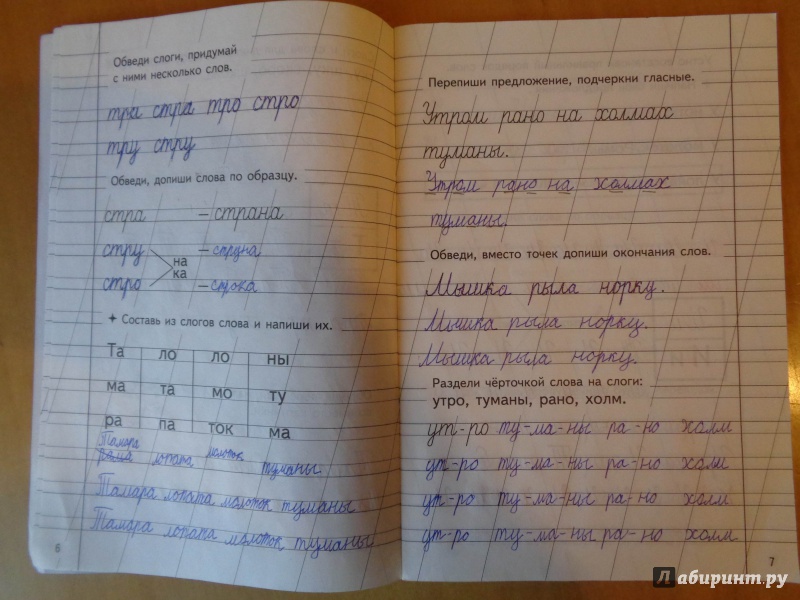 Обведи слоги, придумай
с ними несколько слов.
тра стра тро стро
тру стру
Обведи, допиши слова по образцу.
стра – страна
стру – струна
на
ка
стро – строка
+ Составь из слогов слова и напиши их.
Та ло ло ны
ма та мо ту
ра па ток ма
Тамара
рама лопата молоток туманы
Тамара лопата молоток туманы
Тамара лопата молоток туманы
6
Перепиши предложение, подчеркни гласные.
Утром рано на холмах
туманы.
Утром рано на холмах
туманы.
Обведи, вместо точек допиши окончания слов.
Мышка рыла норку.
Мышка рыла норку.
Мышка рыла норку.
Раздели чёрточкой слова на слоги:
утро, туманы, рано, холм.
ут-ро ту-ма-ны ра-но холм
ут-ро ту-ма-ны ра-но холм
ут-ро ту-ма-ны ра-но холм
ут-ро ту-ма-ны ра-но холм
7
Лабиринт.ру